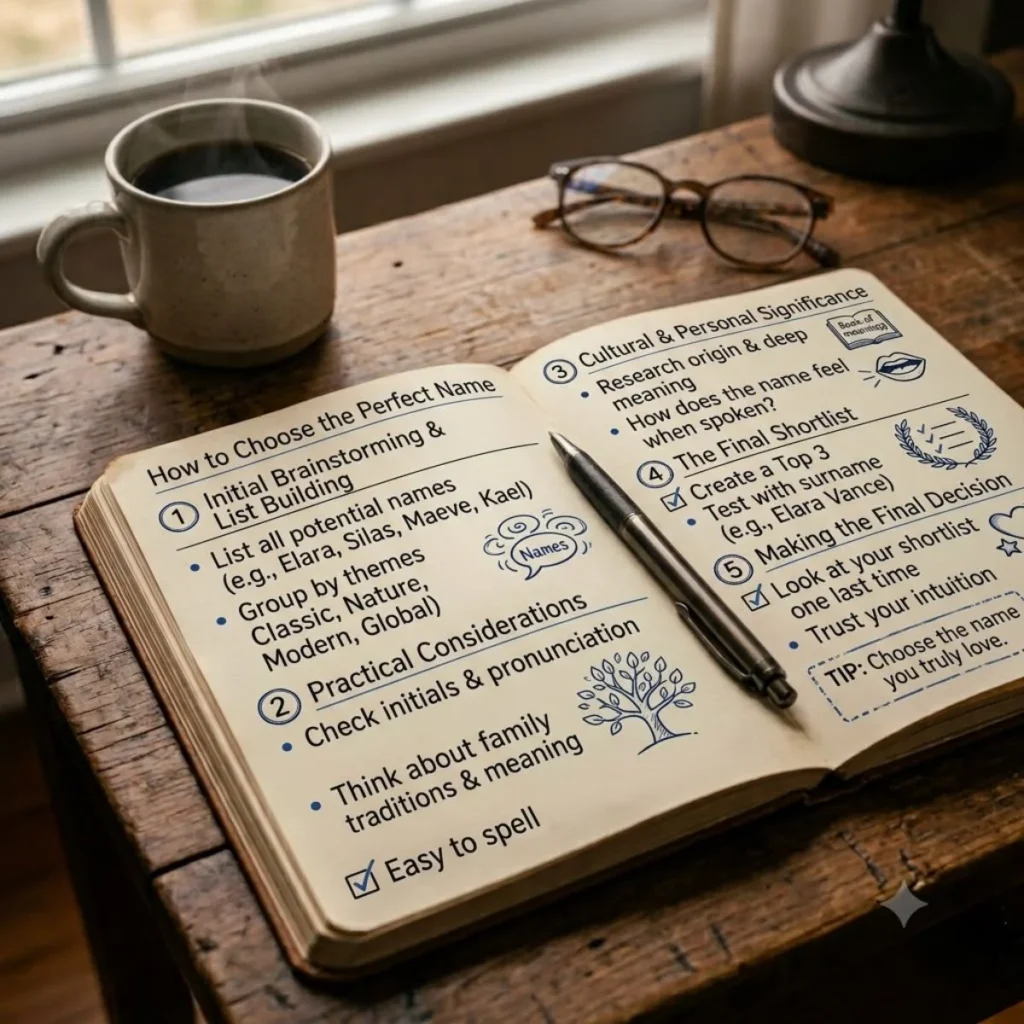 How to Choose the Perfect Name
1 Initial Brainstorming &
List Building
• List all potential names
(e.g., Elara, Silas, Maeve, Kael)
• Group by themes
Classic, Nature,
Modern, Global)
Names
2 Practical Considerations
• Check initials & pronunciation
• Think about family
traditions & meaning
☑ Easy to spell
3 Cultural & Personal Significance
• Research origin & deep
meaning
Book of
• How does the name feel
when spoken?
4 The Final Shortlist
☑ Create a Top 3
• Test with surname
(e.g., Elara Vance)
5 Making the Final Decision
☑ Look at your shortlist
one last time
• Trust your intuition
TIP: Choose the name
you truly love.